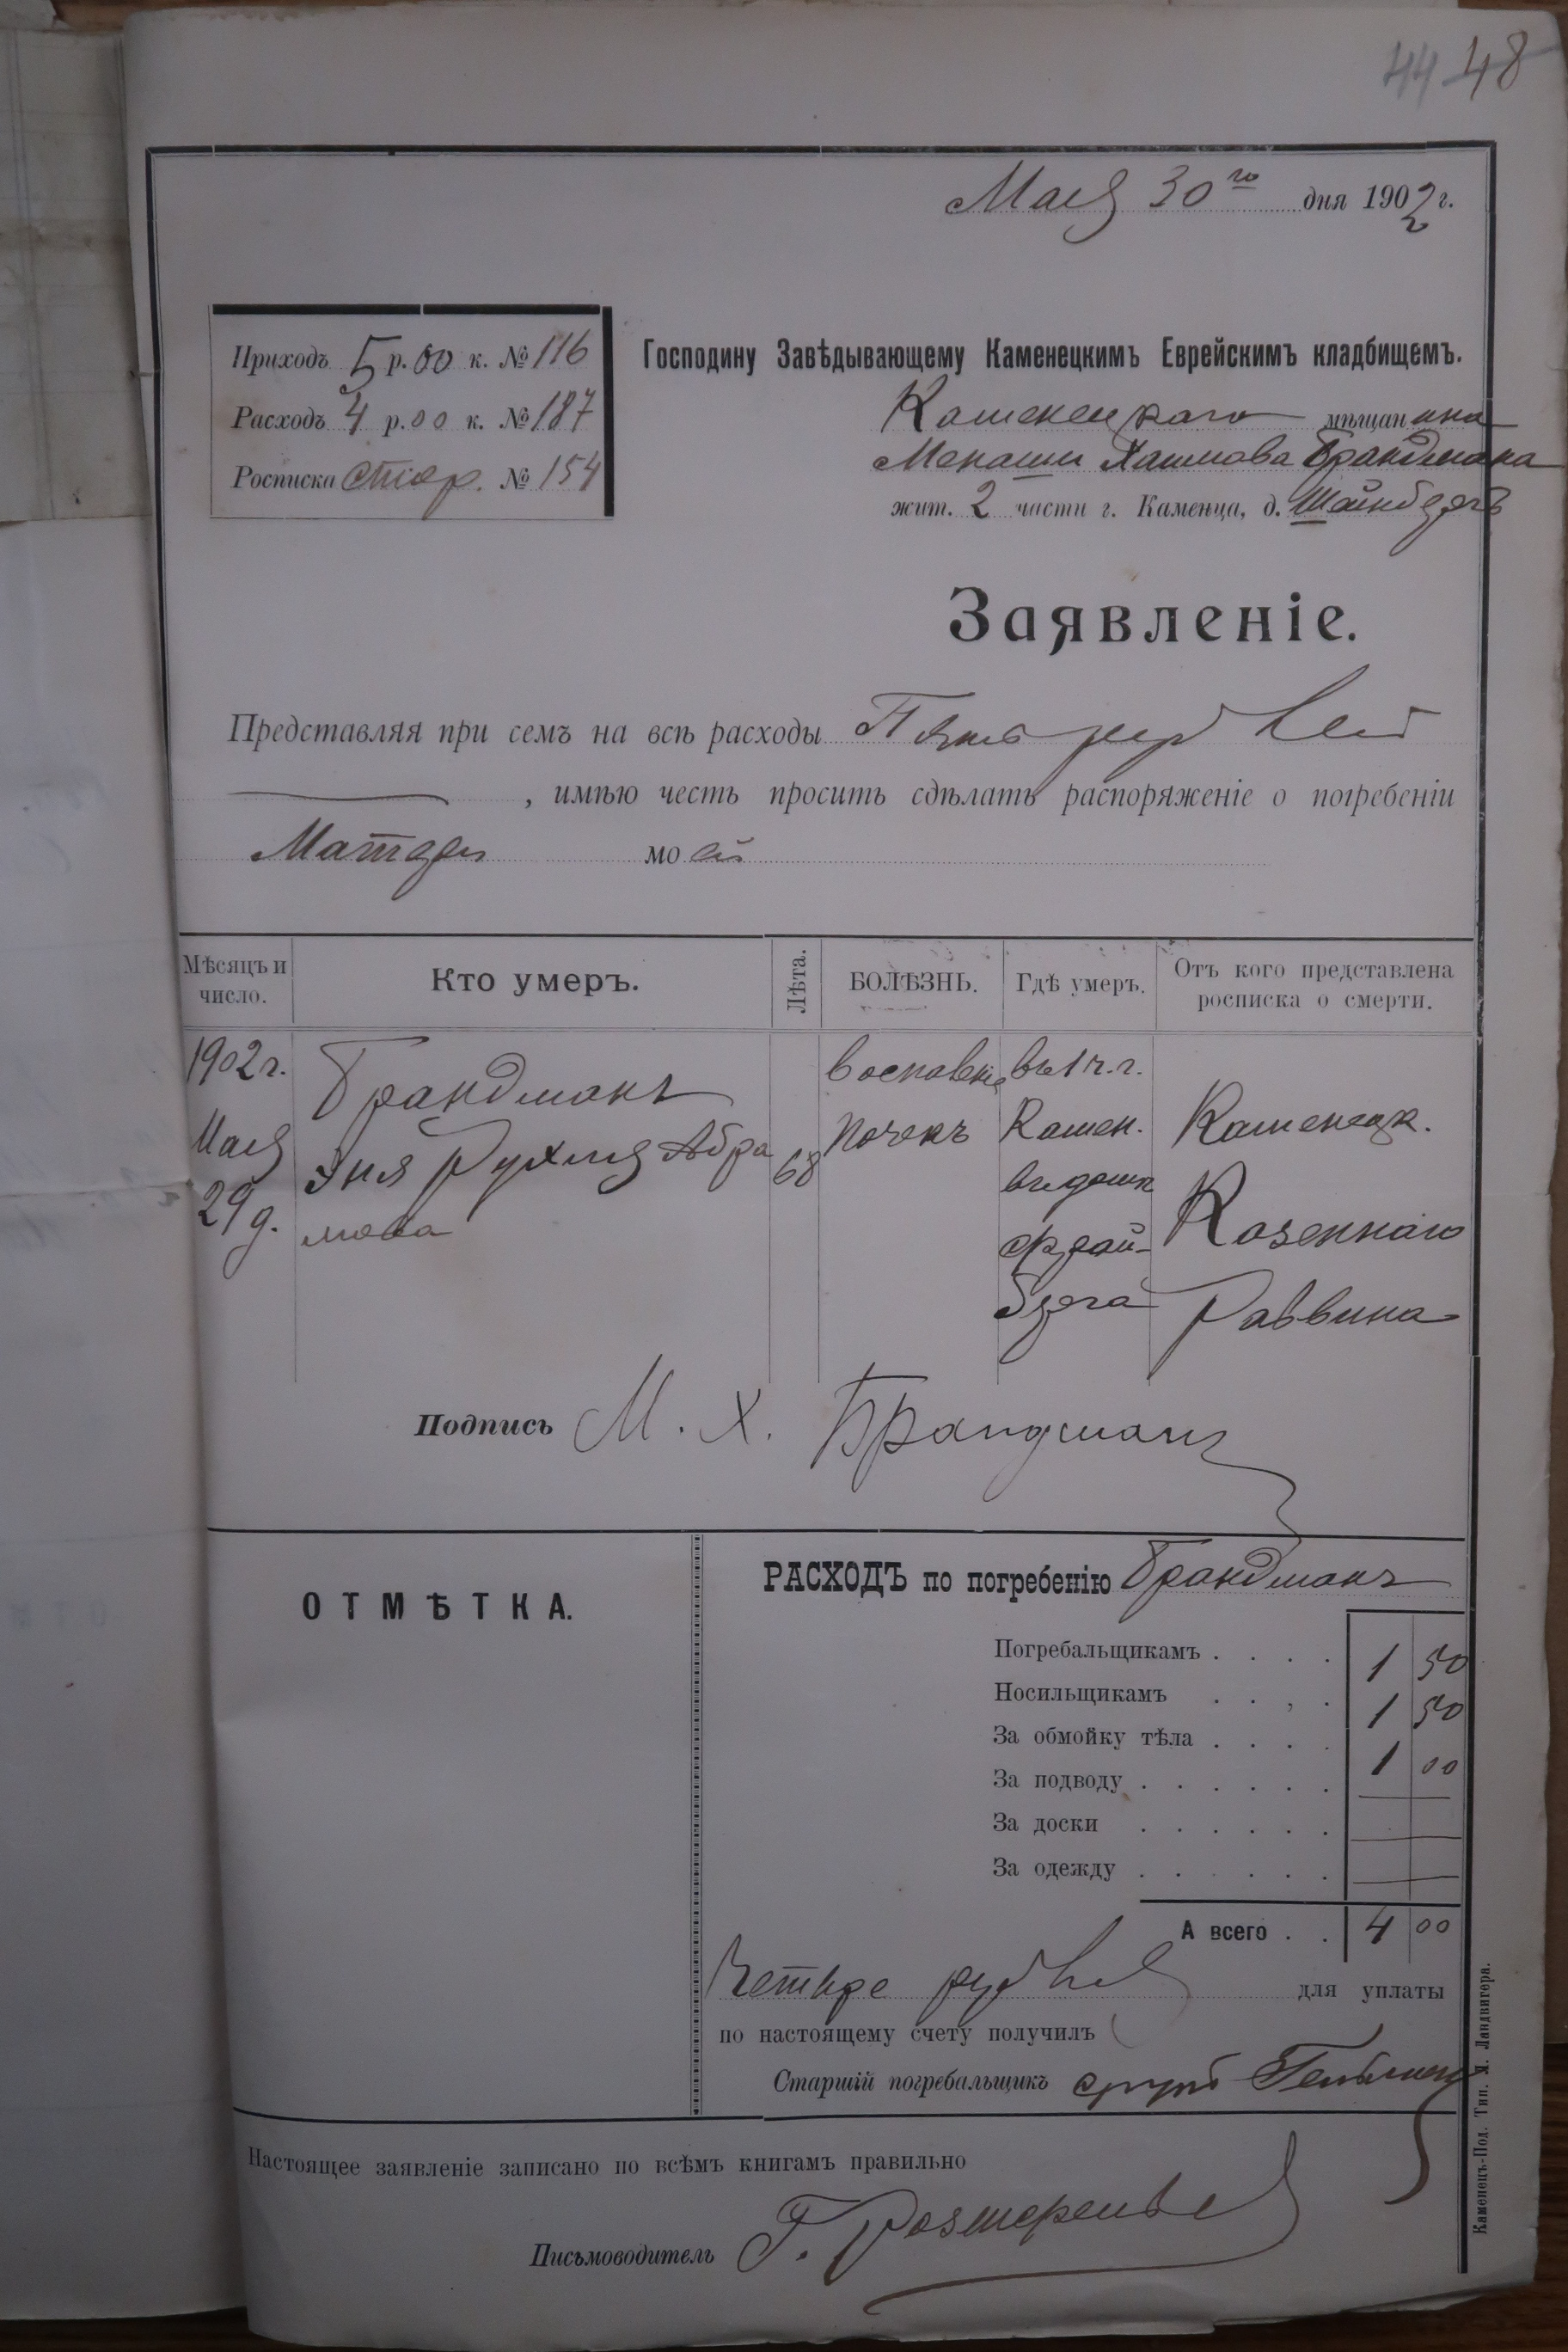 44 48
Мая 30го дня 1902 г.
Приходъ 5 р. 00 к. № 116
Расходъ 4 р. 00 к. № 187
Росписка стор. № 154
Господину Завѣдывающему Каменецкимъ Еврейскимъ кладбищемъ.
Каменецкаго мѣщанина
Менаши Хаимова Брандмана
жит. 2 части г. Каменца, д. Шайнберъ
Заявленіе.
Представляя при семъ на всѣ расходы Пять рублей
, имѣю честь просить сдѣлать распоряженіе о погребеніи
Матери моей
Мѣсяцъ и число. Кто умеръ. Лѣта. БОЛѢЗНЬ. Гдѣ умеръ. Отъ кого представлена росписка о смерти.
1902 г. Брандманъ воспавленіе въ 1 ч. г.
Мая Эня Рухля Абра 68 почекъ Камен. Каменецк.
29 д. мова въ домѣ Казеннаго
Раввина
Подпись М. Х. Брандманъ
ОТМѢТКА.
РАСХОДЪ по погребенію Брандманъ
Погребальщикамъ . . . . 1 50
Носильщикамъ . . , . 1 50
За обмойку тѣла . . . . 1 00
За подводу . . . . . . —
За доски . . . . . . —
За одежду . . . . . . —
А всего . . 4 00
Четыре рубля для уплаты
по настоящему счету получилъ
Старшій погребальщикъ
Настоящее заявленіе записано по всѣмъ книгамъ правильно
Письмоводитель Г.
Каменецъ-Под. Тип. Я. Ландвигера.